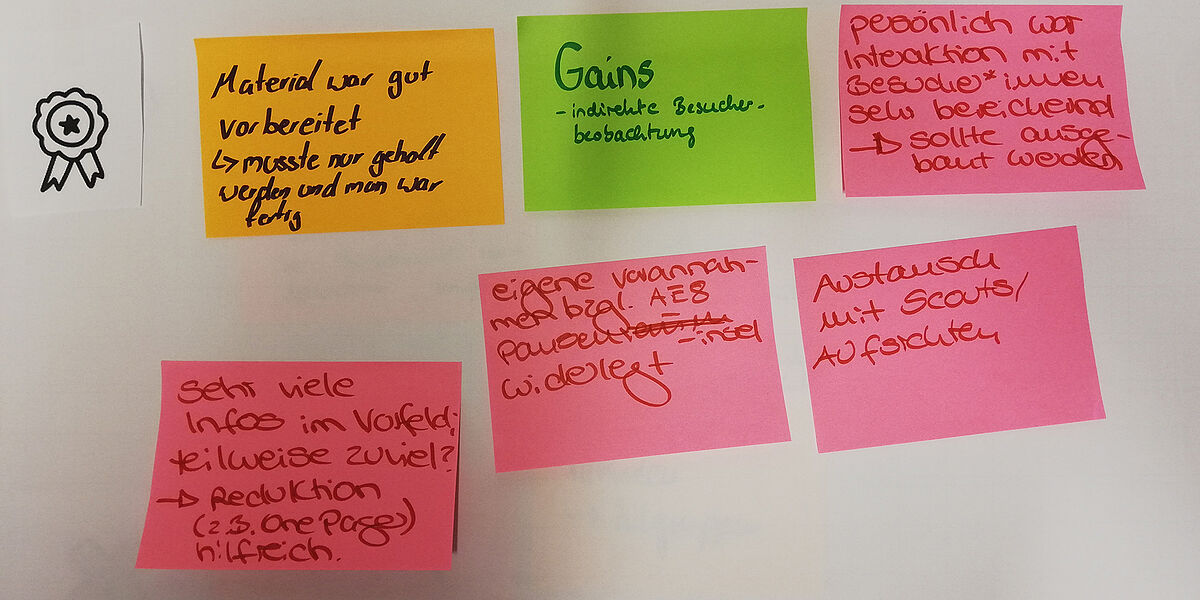 Material war gut
vorbereitet
↳ musste nur geholt
werden und man war
fertig
Gains
- indirekte Besucher-
beobachtung
persönlich war
Interaktion mit
Besucher*innen
sehr bereichernd
→ sollte ausge-
baut werden
eigene Vorannah-
men bzgl. AEB
Pausen
-insel
widerlegt
Austausch
mit Scouts/
Aufsichten
Sehr viele
Infos im Vorfeld;
teilweise zuviel?
→ Reduktion
(z.B. One Pager)
hilfreich.